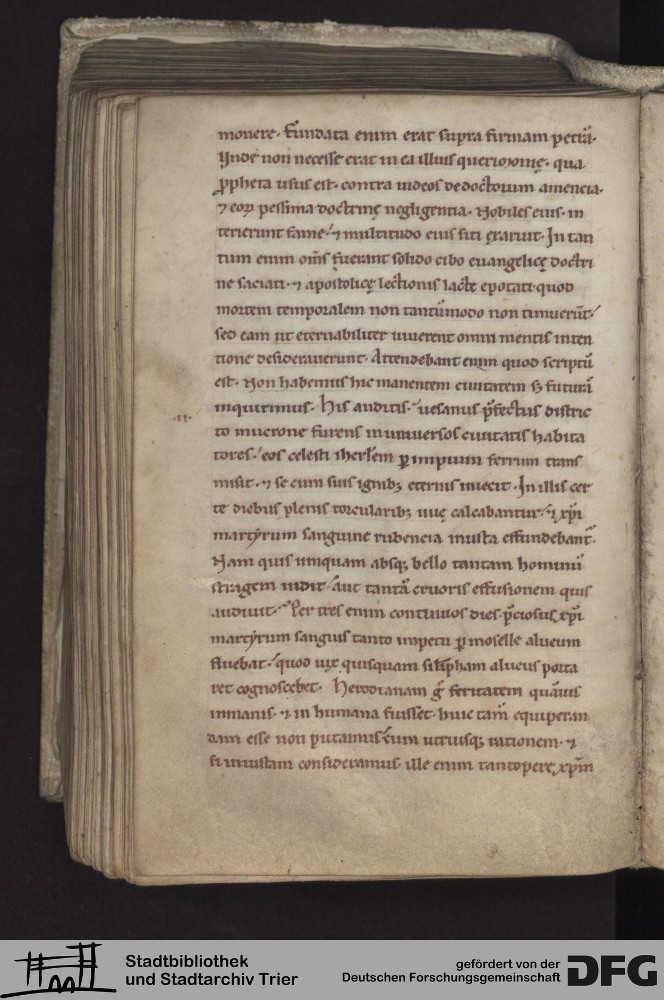 mouere· fundata enim erat supra firmam petrā·
Unde non necesse erat in ea illius querimonię· qua
ꝓpheta usus est· contra iudeos de doctorum amencia·
⁊ eoꝝ pessima doctrinę negligentia· Nobiles eius· in
terierunt fame· ⁊ multitudo eius siti exaruit· In tan
tum enim om̄s fuerant solido cibo euangelicę doctri
nę saciati· ⁊ apostolicę lectionis lacte epotati· quod
mortem temporalem non tantūmodo non timuerūt·
sed eam ut eternabiliter uiuerent omni mentis inten
tione desiderauerunt· Attendebant enim quod scriptū
est· Non habemus hic manentem ciuitatem sꝫ futurā
inquirimus· His auditis· uesanus p̄fectus distric
to mucrone furens in uniuersos ciuitatis habita
tores· eos celesti iherl̄em ꝑ impium ferrum trans
misit· ⁊ se cum suis ignibꝫ eternis iniecit· In illis cer
te diebus plenis torcularibꝫ uuę calcabantur· ⁊ xp̄i
martyrum sanguine rubencia musta effundebant·
Nam quis umquam absqꝫ bello tantam hominū
stragem uidit· aut tantā cruoris effusionem quis
audiuit· Per tres enim continuos dies· p̄ciosus xp̄i
martyrum sanguis tanto impetu ꝑ moselle alueum
fluebat· quod uix quisquam si limpham alueus porta
ret cognosceret· Herodianam g̊ feritatem quāuis
inmanis· ⁊ in humana fuisset· huic tam̄ equiperan
dam esse non putamus· cum utriusqꝫ rationem· ⁊
si iniustam consideramus· ille enim tantopere xp̄m
·II·
Stadtbibliothek
und Stadtarchiv Trier
gefördert von der
Deutschen Forschungsgemeinschaft
DFG